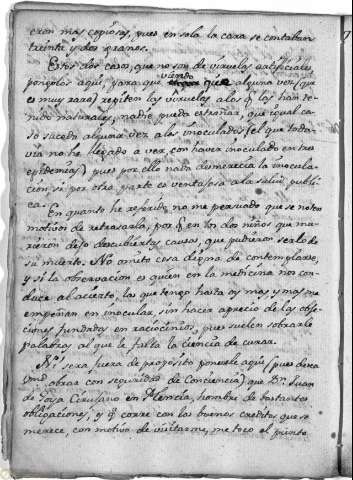 eron mas copiosas, pues en sola la cara se contaban
treinta y dos granos.
Estos dos casos, que no son de viruelas artificiales
pongolos aqui, para que viendo que alguna vez (que
es muy raro) repiten las viruelas a los q.e las han te-
nido naturales, nadie pueda estrañar, que igual ca-
so suceda alguna vez a los inoculados (el que toda-
via no he llegado a ver con haver inoculado en tres
epidemias) pues por ello nada desmereceria la inocula-
cion si por otra parte es ventajosa a la salud publi-
ca.
En quanto he referido no me persuado que se noten
motivos de retrasarla, por q.e en los dos niños que mu-
rieron dejo descubiertas causas, que pudieron serlo de
su muerte. No omito cosa digna de contemplarse,
y si la observacion es quien en la medicina nos con-
duce al acierto, las que tengo hasta oy mas y mas me
empeñan en inocular, sin hacer aprecio de las obje-
ciones fundadas en raciocinios, pues suelen sobrarle
palabras al que le falta la ciencia de curar.
No sera fuera de proposito ponerle aqui (pues desea
Vmd obrar con seguridad de conciencia) que Dn. Juan
de Cirujano en Plencia, hombre de bastantes
obligaciones, y q.e corre con los buenos creditos que se
merece, con motivo de visitarme, me toco el punto